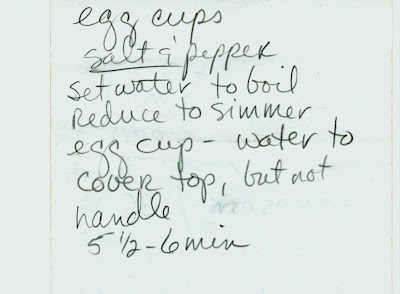 egg cups
salt & pepper
set water to boil
reduce to simmer
egg cup - water to
cover top, but not
handle
5 1/2 - 6 min